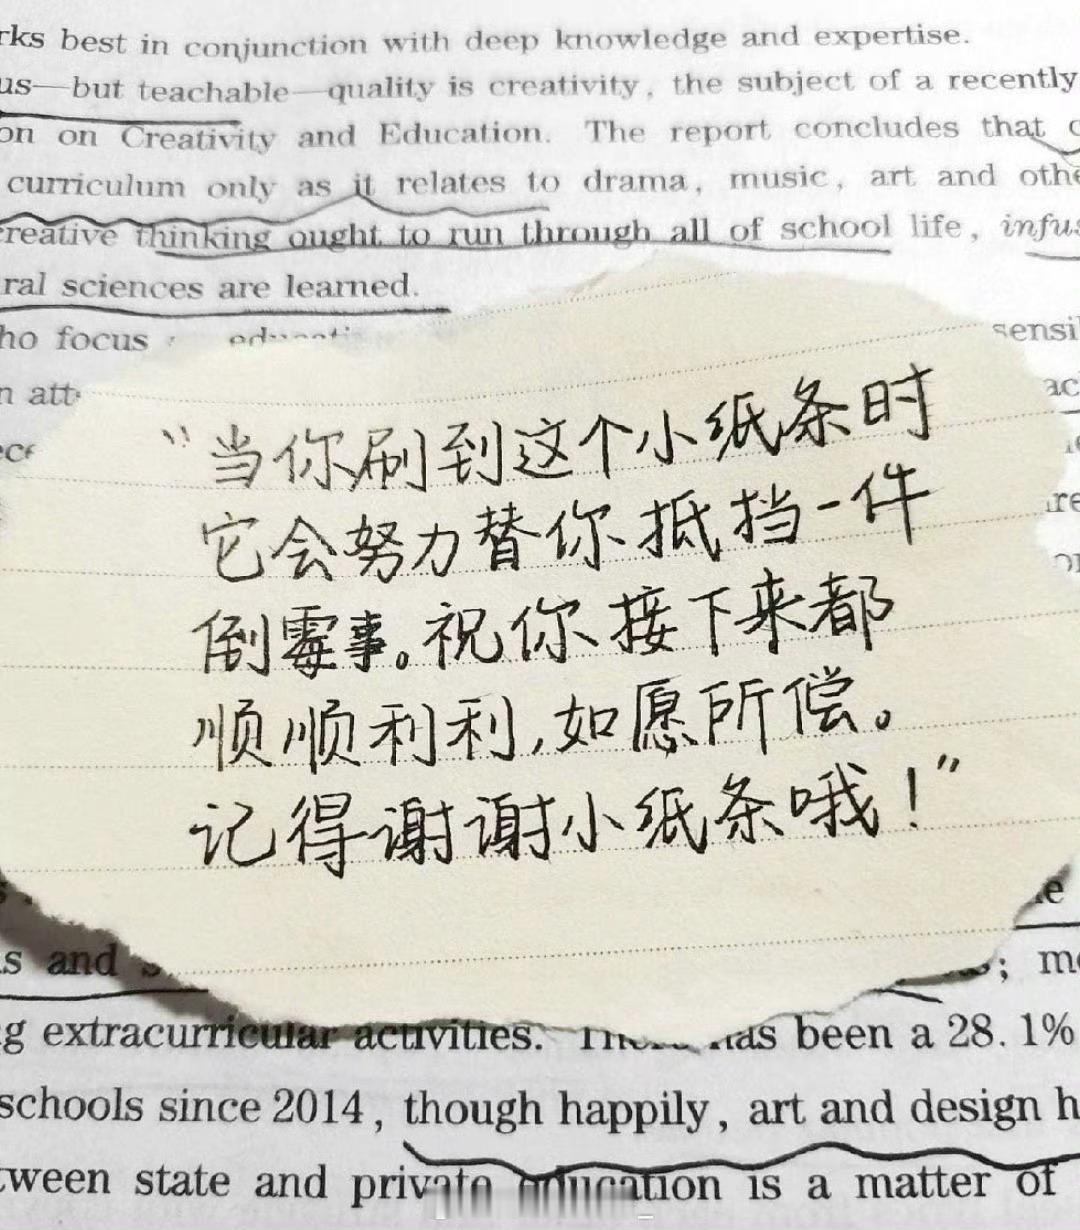 best in conjunction with deep knowledge and expertise.
but teachable—quality is creativity, the subject of a recently
on Creativity and Education. The report concludes that
curriculum only as it relates to drama, music, art and
thinking ought to run through all of school life,
sciences are learned.
focus
“当你刷到这个小纸条时
它会努力替你抵挡一件
倒霉事。祝你接下来都
顺顺利利,如愿所偿。
记得谢谢小纸条哦！”
and
extracurricular activities. has been a 28.1%
schools since 2014, though happily, art and design
state and private education is a matter of